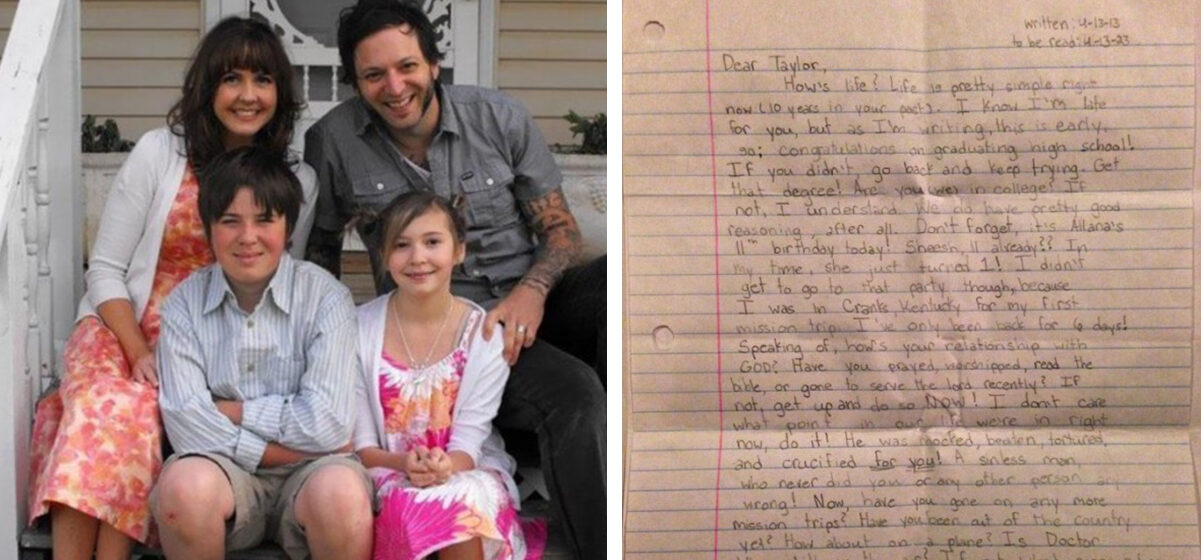 written: 4-13-13
to be read: 4-13-23
Dear Taylor,
How's life? Life is pretty simple right
now (10 years in your past). I know I'm late
for you, but as I'm writing, this is early,
so; congratulations on graduating high school!
If you didn't, go back and keep trying. Get
that degree! Are you (we) in college? If
not, I understand. We do have pretty good
reasoning, after all. Don't forget, it's Allana's
11th birthday today! Sheesh, 11 already?? In
my time, she just turned 1! I didn't
get to go to that party though, because
I was in Cranks Kentucky for my first
mission trip. I've only been back for 6 days!
Speaking of, how's your relationship with
GOD? Have you prayed, worshipped, read the
bible, or gone to serve the lord recently? If
not, get up and do so NOW! I don't care
what point in our life we're in right
now, do it! He was mocked, beaten, tortured,
and crucified for you! A sinless man,
who never did you or any other person any
wrong! Now, have you gone on any more
mission trips? Have you been out of the country
yet? How about on a plane? Is Doctor